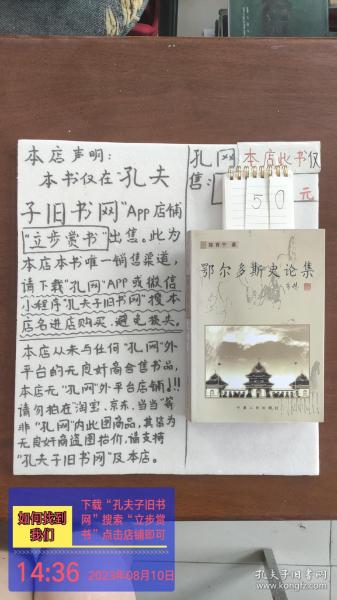 本店声明：
本书仅在"孔夫
子旧书网"App店铺
"立步赏书"出售。此为
本店本书唯一销售渠道，
请下载"孔网"APP或微信
小程序"孔夫子旧书网"搜本
店名进店购买，避免损失。
本店从未与任何"孔网"外
平台的无良奸商合售书品，
本店无"孔网"外平台店铺!!!
请勿拍在"淘宝、京东、当当"等
非"孔网"内此图商品，其皆为
无良奸商盗图抬价，请支持
"孔夫子旧书网"及本店。
孔网本店此书仅
售：
50元
陈育宁 著
鄂尔多斯史论集
宁夏人民出版社
如何找到
我们
下载"孔夫子旧书
网"搜索"立步赏
书"点击店铺即可
14:36
2023年08月10日
孔夫子旧书网